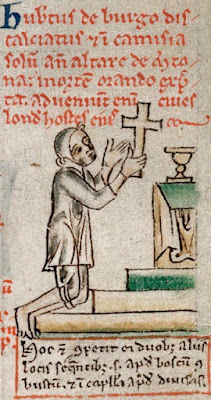 hubtus de burgo dis
calciatus et i camisia
solum añ altare de
na: morte orando exp
tat. advenunt eni cives
lond hostes eius
Hoc et i duob alus
locis seqntibz. s. apd boscu
et i caplla apd divisas.